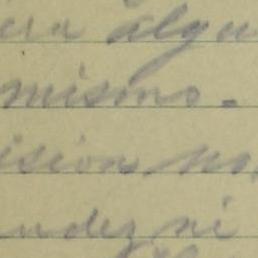 era algu
mismo.-
ision no
ndez ni